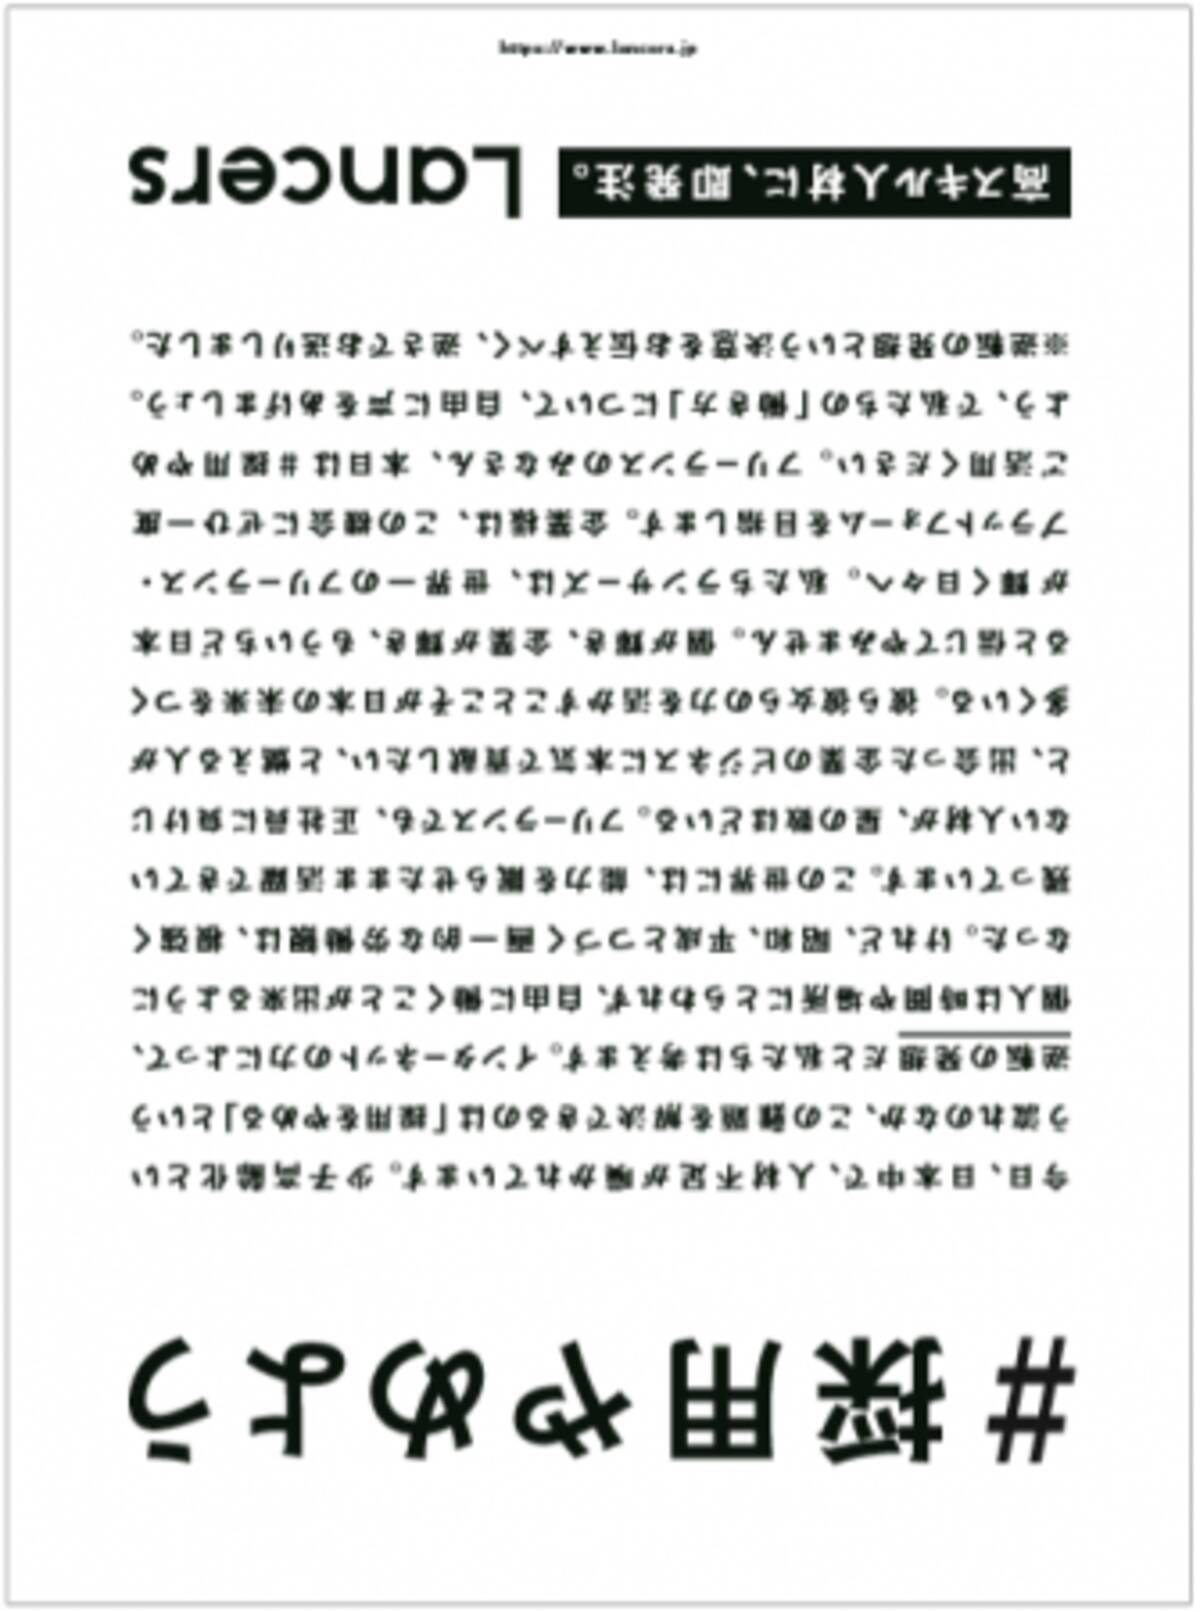 #採用やめよう
今日、日本中で、人材不足が嘆かれています。少子高齢化とい
う流れのなか、この難題を解決できるのは「採用をやめる」という
逆転の発想だと私たちは考えます。インターネットの力によって、
個人は時間や場所にとらわれず、自由に働くことが出来るように
なった。けれど、昭和、平成とつづく画一的な労働観は、根強く
残っています。この世界には、能力を眠らせたまま活躍できてい
ない人材が、星の数ほどいる。フリーランスでも、正社員に負けじ
と、出会った企業のビジネスに本気で貢献したい、と燃える人が
多くいる。彼ら彼女らの力を活かすことこそが日本の未来をつく
ると信じてやみません。個が輝き、企業が輝き、もういちど日本
が輝く日々へ。私たちランサーズは、世界一のフリーランス・
プラットフォームを目指します。企業様は、この機会にぜひ一度
ご活用ください。フリーランスのみなさん、本日は#採用やめ
よう、で私たちの「働き方」について、自由に声をあげましょう。
※逆転の発想という決意をお伝えすべく、逆さでお送りしました。
高スキル人材に、即発注。 Lancers
https://www.lancers.jp